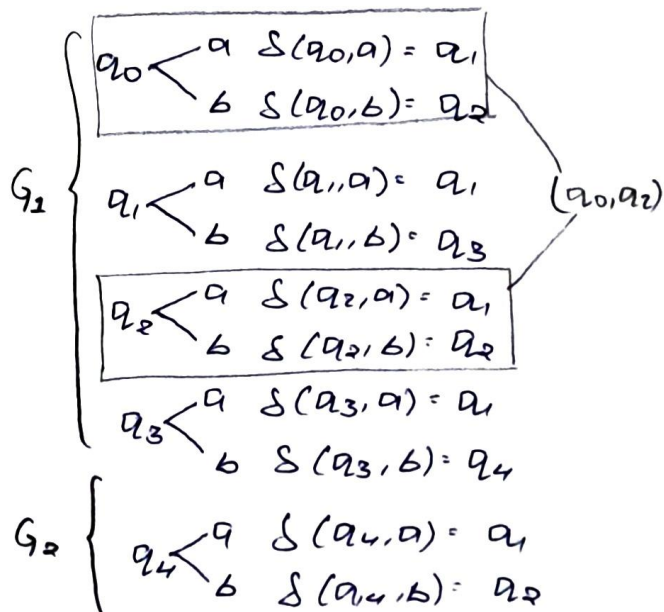 G1
q0 a δ(q0,a) = q1
b δ(q0,b) = q2
q1 a δ(q1,a) = q1
b δ(q1,b) = q3
(q0,q2)
q2 a δ(q2,a) = q1
b δ(q2,b) = q2
q3 a δ(q3,a) = q1
b δ(q3,b) = q4
G2
q4 a δ(q4,a) = q1
b δ(q4,b) = q2